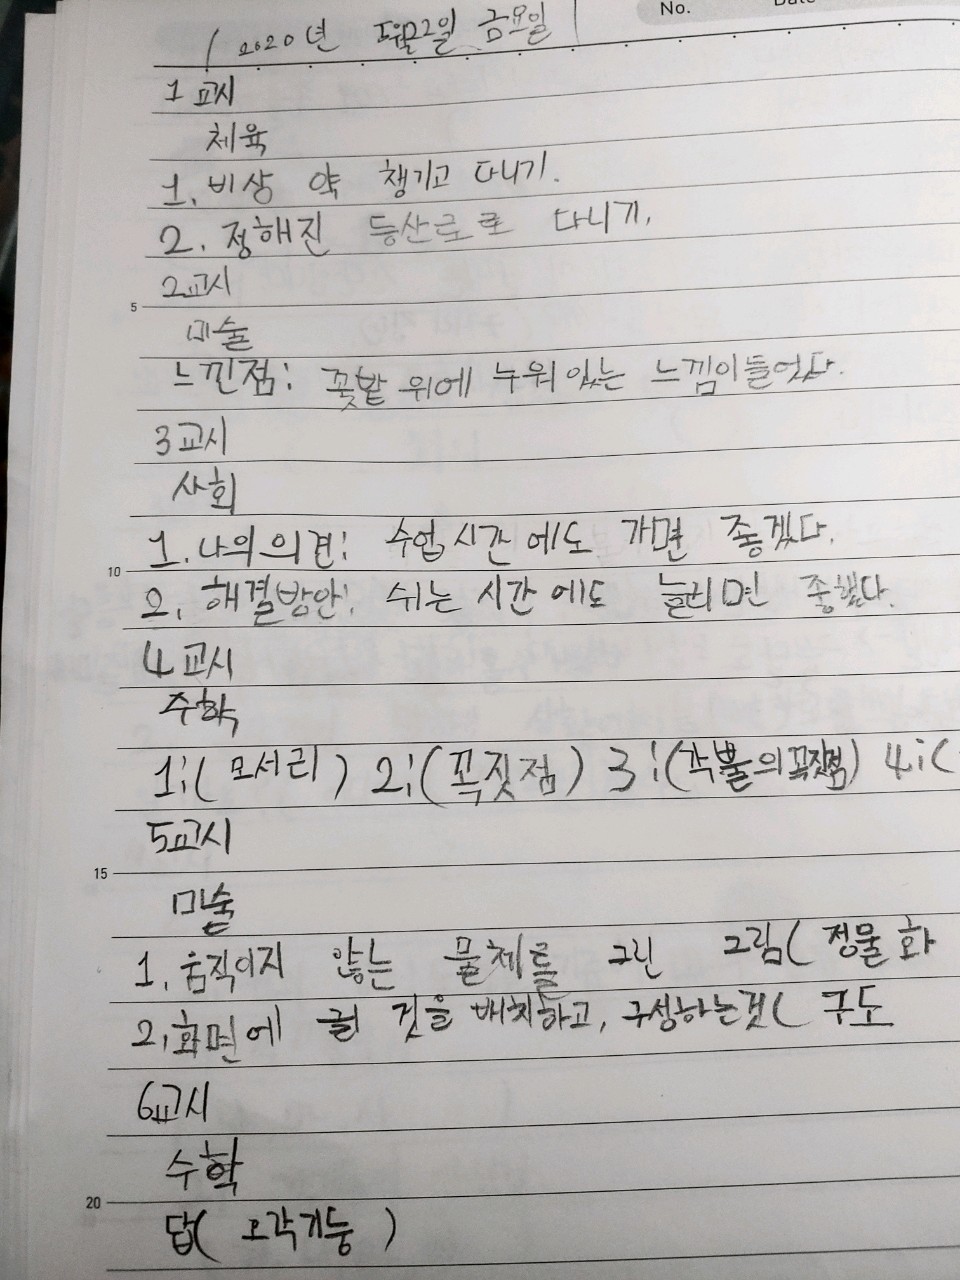 No. Date
2020년 금요일
1교시
체육
1. 비상 약 챙기고 다니기.
2. 정해진 등산로로 다니기.
2교시
5
미술
느낀점: 꽃밭 위에 누워 있는 느낌이 들었다.
3교시
사회
1. 나의 의견: 수업 시간 에도 가면 좋겠다.
10
2. 해결방안: 쉬는 시간 에도 늘리면 좋겠다.
4교시
수학
1:(모서리) 2:(꼭짓점) 3:(각뿔의꼭짓점) 4:(
5교시
15
미술
1. 움직이지 않는 물체를 그린 그림( 정물 화
2. 화면에 그릴 것을 배치하고, 구성하는것( 구도
6교시
수학
20
답( 오각기둥 )